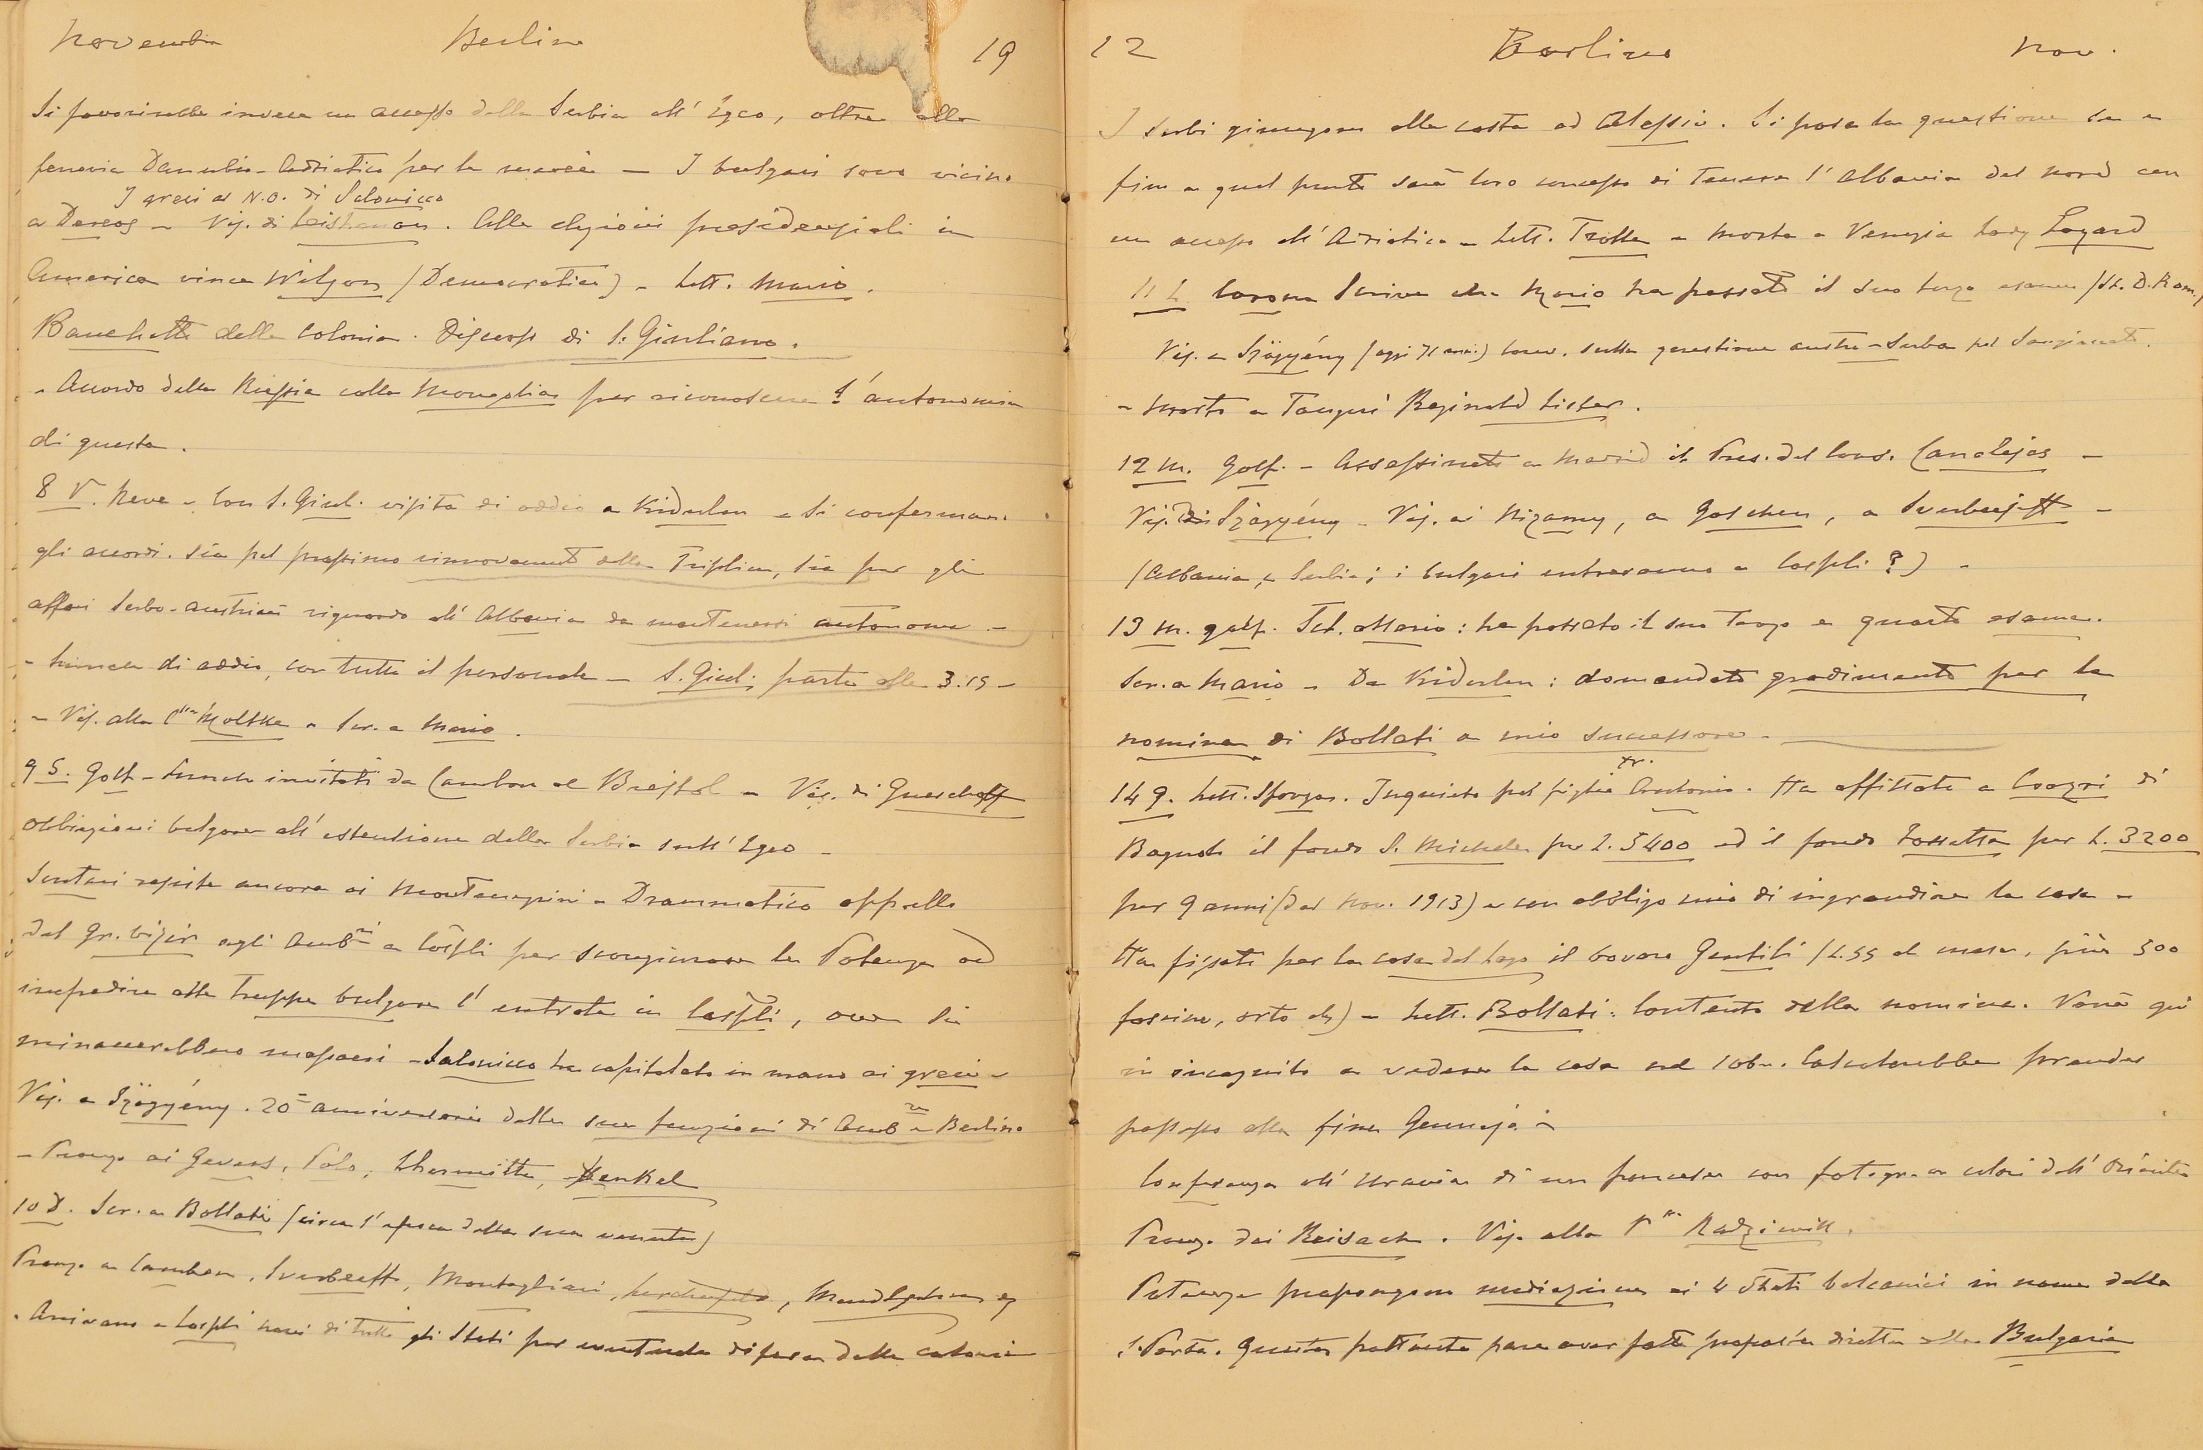 Novembre Berlino 19
Si favorirebbe invece un accesso della Serbia all'Egeo, oltre alla
ferrovia Danubio-Adriatica per la merce — I bulgari sono vicino
I greci al N.O. di Salonicco
a Dercos – Vis. di Leishman. Alle elezioni presidenziali in
America vince Wilson (Democratico) – Lett. Mario.
Banchetto della colonia. Discorso di S. Giuliano.
– Accordo della Russia colla Mongolia per riconoscere l'autonomia
di questa.
8 V. Neve – Con S. Giul. visita di addio a Kiderlen – Si confermano
gli accordi, sia pel prossimo rinnovamento della Triplice, sia per gli
affari Serbo-austriaci riguardo all'Albania da mantenersi autonoma –
– Lunch di addio, con tutto il personale – S. Giul. parte alle 3.15 –
– Vis. alla C.ssa Moltke – Scr. a Mario.
9 S. Golf – Lunch invitati da Cambon al Bristol – Vis. di Gueschoff
Obbiezioni bulgare all'estensione della Serbia sull'Egeo –
Scutari resiste ancora ai Montenegrini – Drammatico appello
del Gr. vizir agli Amb.ri a Cospli per scongiurare le Potenze ad
impedire alle truppe bulgare l'entrata in Cospli, ove si
minaccerebbero massacri – Salonicco ha capitolato in mano ai greci –
Vis. a Szögyény. 20° anniversario delle sue funzioni di Amb.re a Berlino
– Pranzo ai Gevers, Polo, Lhermitte, Henkel
10 D. Scr. a Bollati (circa l'epoca della sua venuta)
Pranzo a Cambon, Sverbeeff, Montagliari, Mendelssohn
– Arrivano a Cospli navi di tutti gli Stati per eventuale difesa delle colonie
12 Berlino Nov.
I Serbi giungono alla costa ad Alessio. Si posa la questione se e
fino a qual punto sarà loro concesso di tenere l'Albania del Nord con
un accesso all'Adriatico – Lett. Trotta – Morta a Venezia Lady Layard
11 L. Corona scrive che Mario ha passato il suo terzo esame (St. D. Rom.)
Vis. a Szögyény (oggi 71 anni) conv. sulla questione austro-serba pel Sangiaccato.
– Morto a Tangeri Reginald Lister.
12 M. Golf. – Assassinato a Madrid il Pres. del Cons. Canalejas –
Vis. di Szögyény – Vis. ai Nizamy, a Goschen, a Sverbejeff –
(Albania, e Serbia; i bulgari entreranno a Cospli?) –
13 M. golf. Tel. Mario: ha passato il suo terzo e quarto esame.
Scr. a Mario – Da Kiderlen: domandato gradimento per la
nomina di Bollati a mio successore –
14 G. Lett. Sforza. Inquieto pel figlio Antonio. Ha affittato a di
Bagnolo il fondo S. Michele per L. 5400 ed il fondo Fossetta per L. 3200
per 9 anni (dal Nov. 1913) e con obbligo mio di ingrandire la casa –
Ha fissato per la casa del Lago il bovaro Gentili (L. 55 al mese, più 500
fascine, orto ) – Lett. Bollati: contento della nomina. Verrà qui
in incognito a vedere la casa nel 10bre. Calcolerebbe prender
possesso alla fine Gennajo –
Conferenza all'Urania di un francese con fotogr. a colori dell'Oriente
Pranzo dai Reisach. Vis. alla P.ssa Radziwill.
Potenze propongono mediazione ai 4 Stati balcanici in nome della
S. Porta. Questa frattanto pare aver fatto proposta diretta alla Bulgaria